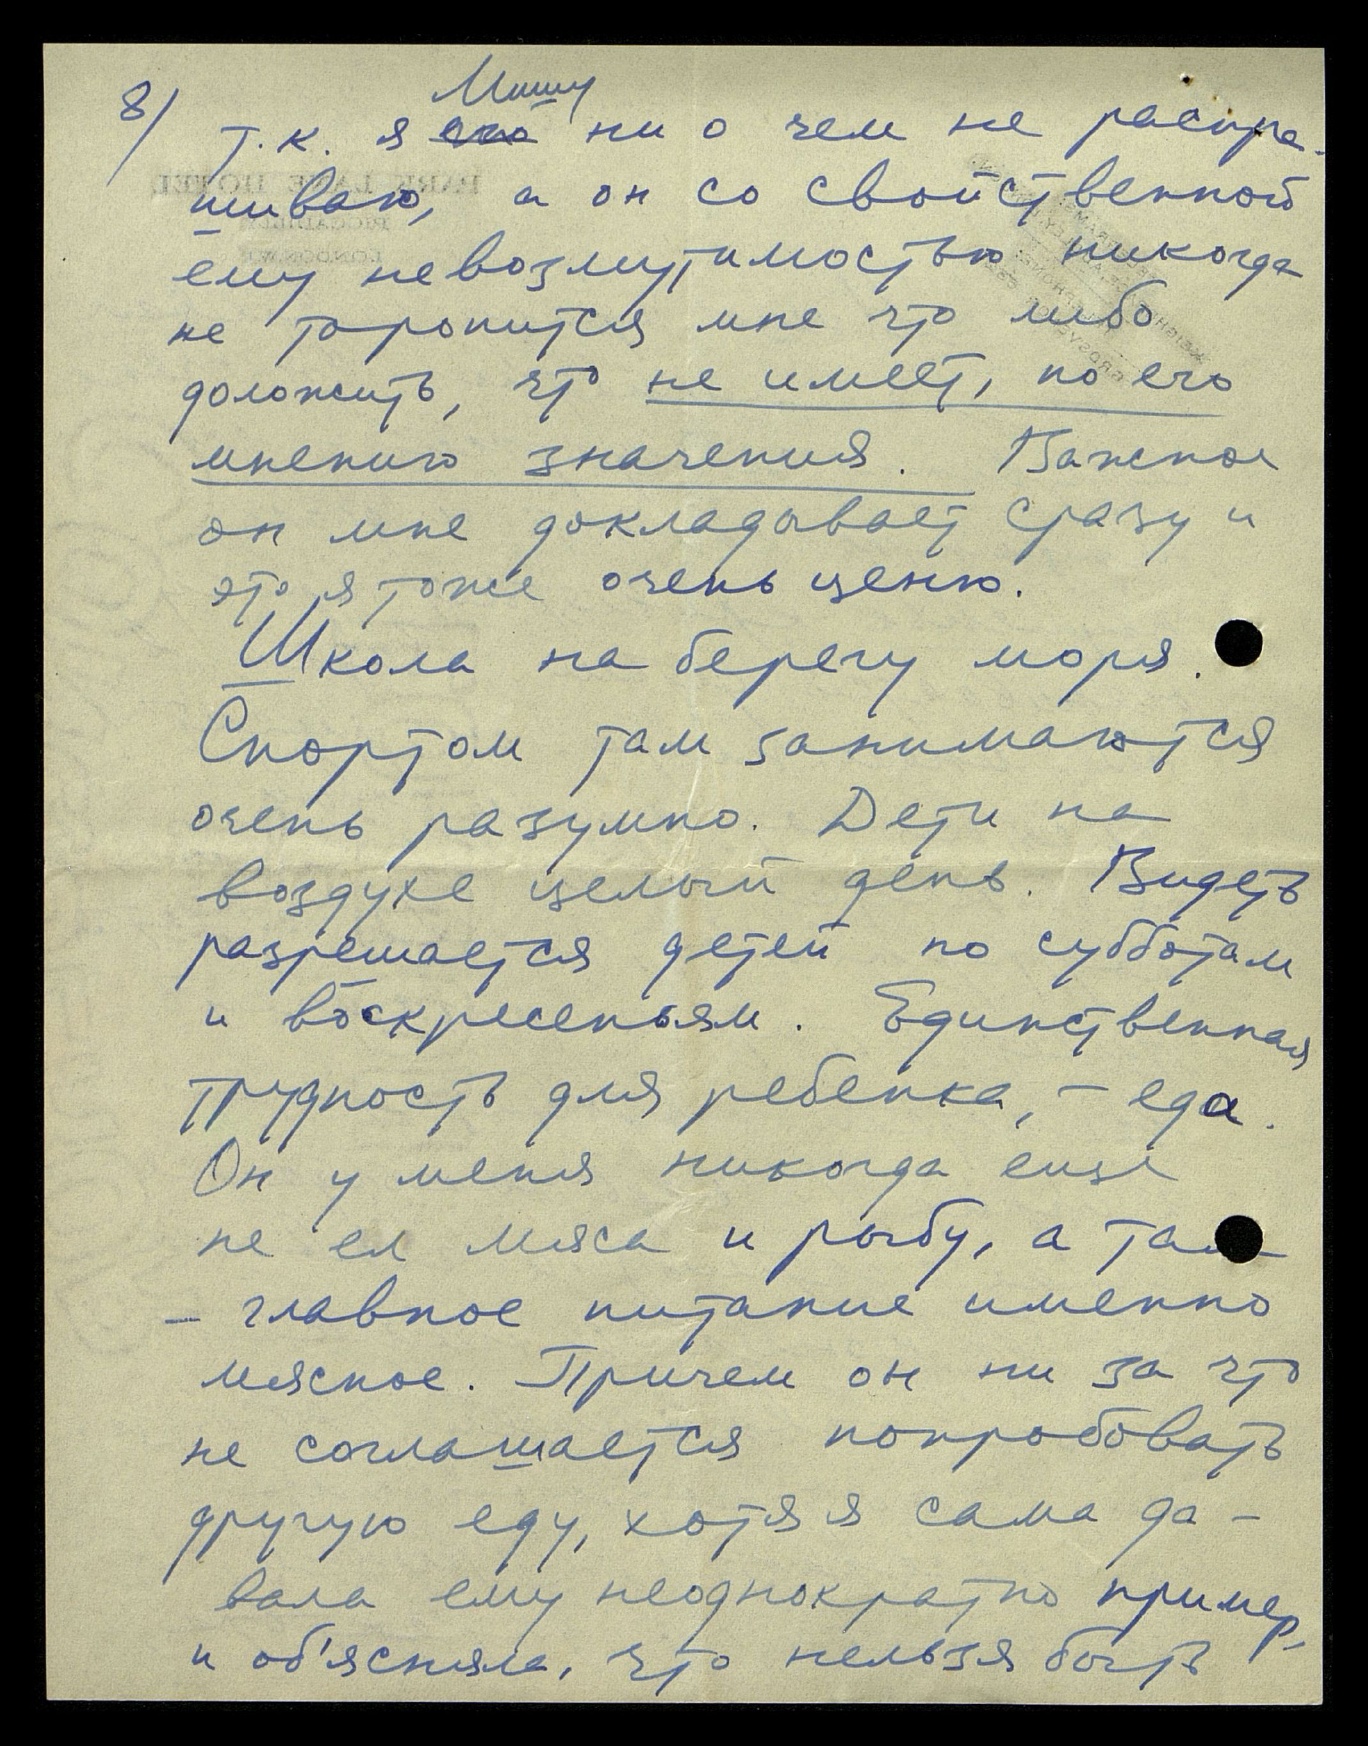 8/
Мишу
т.к. я его ни о чем не распра-
шиваю, а он со свойственной
ему невозмутимостью никогда
не торопится мне что либо
доложить, что не имеет, по его
мнению значения. Важное
он мне докладывает сразу и
это я тоже очень ценю.
Школа на берегу моря.
Спортом там занимаются
очень разумно. Дети на
воздухе целый день. Видеть
разрешается детей по субботам
и воскресеньям. Единственная
трудность для ребенка, – еда.
Он у меня никогда еще
не ел мяса и рыбу, а там
– главное питание именно
мясное. Причем он ни за что
не соглашается попробовать
другую еду, хотя я сама да-
вала ему неоднократно пример
и об'ясняла, что нельзя быть
PARK LANE HOTEL
PICCADILLY
LONDON. W.1